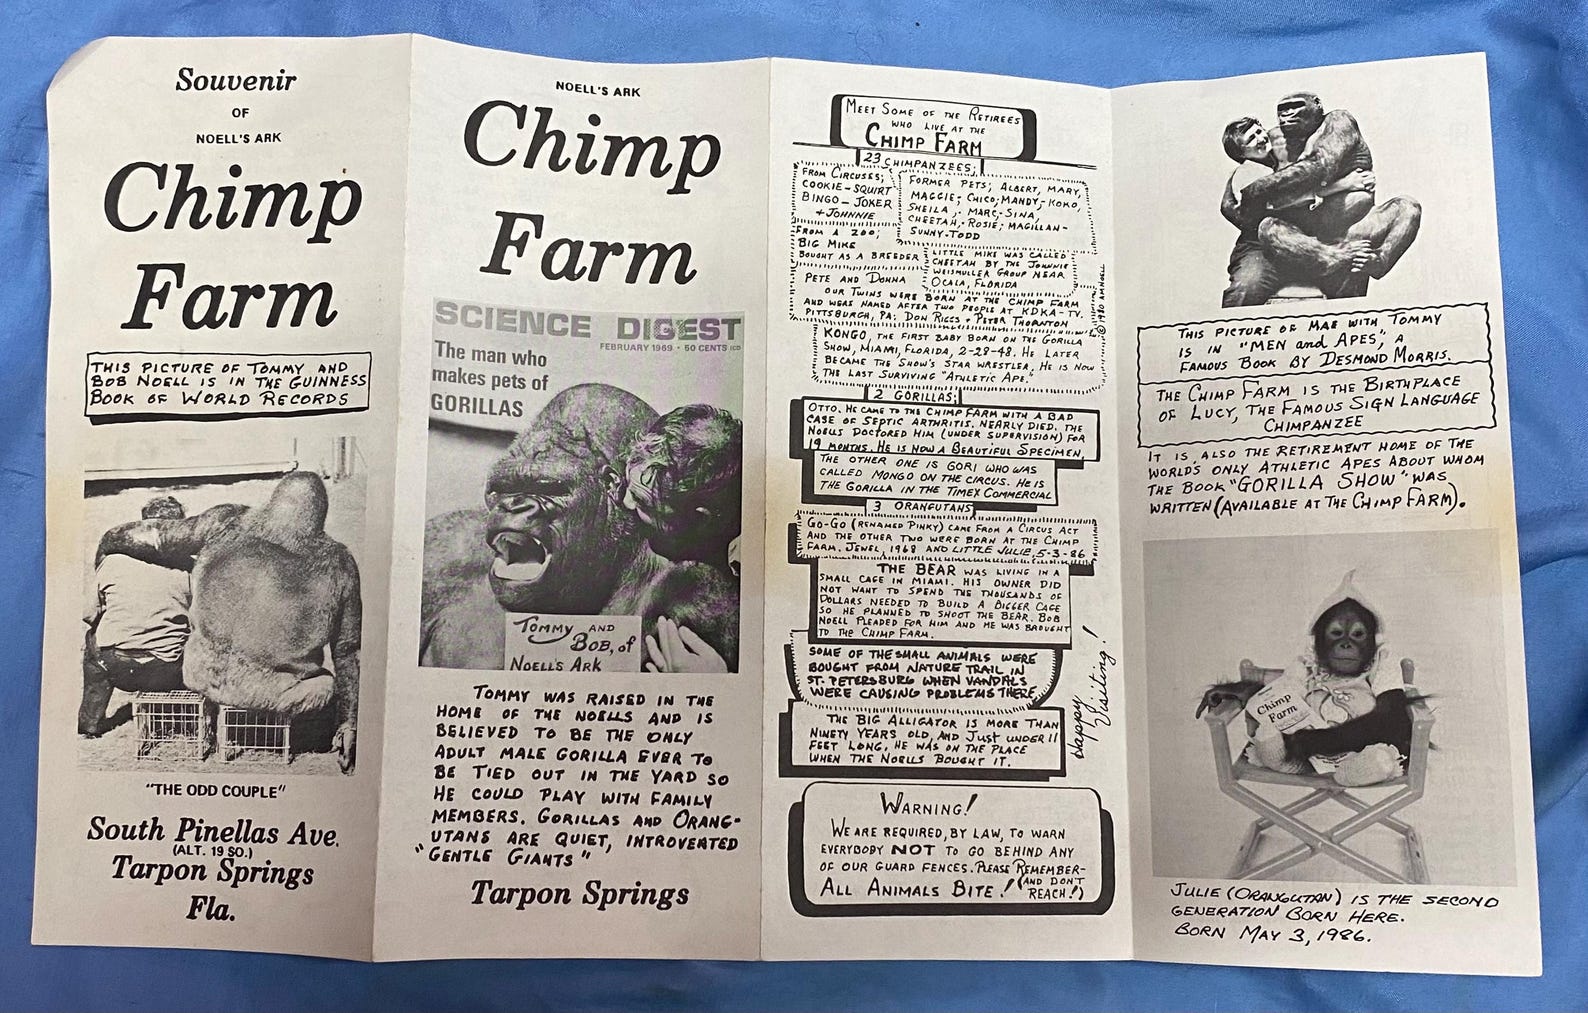 Souvenir
OF
NOELL'S ARK
Chimp
Farm
THIS PICTURE OF TOMMY AND
BOB NOELL IS IN THE GUINNESS
BOOK OF WORLD RECORDS
"THE ODD COUPLE"
South Pinellas Ave.
(ALT. 19 SO.)
Tarpon Springs
Fla.
NOELL'S ARK
Chimp
Farm
SCIENCE DIGEST
FEBRUARY 1969 • 50 CENTS ICD
The man who
makes pets of
GORILLAS
TOMMY AND
BOB, of
NOELL'S ARK
TOMMY WAS RAISED IN THE
HOME OF THE NOELLS AND IS
BELIEVED TO BE THE ONLY
ADULT MALE GORILLA EVER TO
BE TIED OUT IN THE YARD SO
HE COULD PLAY WITH FAMILY
MEMBERS. GORILLAS AND ORANG-
UTANS ARE QUIET, INTROVENTED
"GENTLE GIANTS"
Tarpon Springs
MEET SOME OF THE RETIREES
WHO LIVE AT THE
CHIMP FARM
23 CHIMPANZEES;
FROM CIRCUSES;
COOKIE-SQUIRT
BINGO-JOKER
+ JOHNNIE
FORMER PETS; ALBERT, MARY,
MAGGIE; CHICO; MANDY,-KOKO,
SHEILA,- MARC,-SINA,
CHEETAH,-ROSIE; MAGILLAN-
SUNNY-TODD
FROM A ZOO;
BIG MIKE
BOUGHT AS A BREEDER
LITTLE MIKE WAS CALLED
CHEETAH BY THE JOHNNIE
WEISMULLER GROUP NEAR
OCALA, FLORIDA
PETE AND DONNA
OUR TWINS WERE BORN AT THE CHIMP FARM
AND WERE NAMED AFTER TWO PEOPLE AT KDKA-TV.
PITTSBURGH, PA: DON RIGGS + PETER THORNTON
© 1980 AM NOELL
KONGO, THE FIRST BABY BORN ON THE GORILLA
SHOW, MIAMI, FLORIDA, 2-28-48. HE LATER
BECAME THE SHOW'S STAR WRESTLER. HE IS NOW
THE LAST SURVIVING "ATHLETIC APE."
2 GORILLAS;
OTTO. HE CAME TO THE CHIMP FARM WITH A BAD
CASE OF SEPTIC ARTHRITIS. NEARLY DIED. THE
NOELLS DOCTORED HIM (UNDER SUPERVISION) FOR
19 MONTHS. HE IS NOW A BEAUTIFUL SPECIMEN,
THE OTHER ONE IS GORI WHO WAS
CALLED MONGO ON THE CIRCUS. HE IS
THE GORILLA IN THE TIMEX COMMERCIAL
3 ORANGUTANS
GO-GO (RENAMED PINKY) CAME FROM A CIRCUS ACT
AND THE OTHER TWO WERE BORN AT THE CHIMP
FARM. JEWEL, 1968 AND LITTLE JULIE, 5-3-86
THE BEAR WAS LIVING IN A
SMALL CAGE IN MIAMI. HIS OWNER DID
NOT WANT TO SPEND THE THOUSANDS OF
DOLLARS NEEDED TO BUILD A BIGGER CAGE
SO HE PLANNED TO SHOOT THE BEAR. BOB
NOELL PLEADED FOR HIM AND HE WAS BROUGHT
TO THE CHIMP FARM.
SOME OF THE SMALL ANIMALS WERE
BOUGHT FROM NATURE TRAIL IN
ST. PETERSBURG WHEN VANDALS
WERE CAUSING PROBLEMS THERE
THE BIG ALLIGATOR IS MORE THAN
NINETY YEARS OLD, AND JUST UNDER 11
FEET LONG. HE WAS ON THE PLACE
WHEN THE NOELLS BOUGHT IT.
Happy
Visiting!
WARNING!
WE ARE REQUIRED, BY LAW, TO WARN
EVERYBODY NOT TO GO BEHIND ANY
OF OUR GUARD FENCES. PLEASE REMEMBER-
ALL ANIMALS BITE! (AND DON'T
REACH!)
THIS PICTURE OF MAE WITH TOMMY
IS IN "MEN and APES", A
FAMOUS BOOK BY DESMOND MORRIS.
THE CHIMP FARM IS THE BIRTHPLACE
OF LUCY, THE FAMOUS SIGN LANGUAGE
CHIMPANZEE
IT IS ALSO THE RETIREMENT HOME OF THE
WORLD'S ONLY ATHLETIC APES ABOUT WHOM
THE BOOK "GORILLA SHOW" WAS
WRITTEN (AVAILABLE AT THE CHIMP FARM).
Chimp
Farm
JULIE (ORANGUTAN) IS THE SECOND
GENERATION BORN HERE.
BORN MAY 3, 1986.